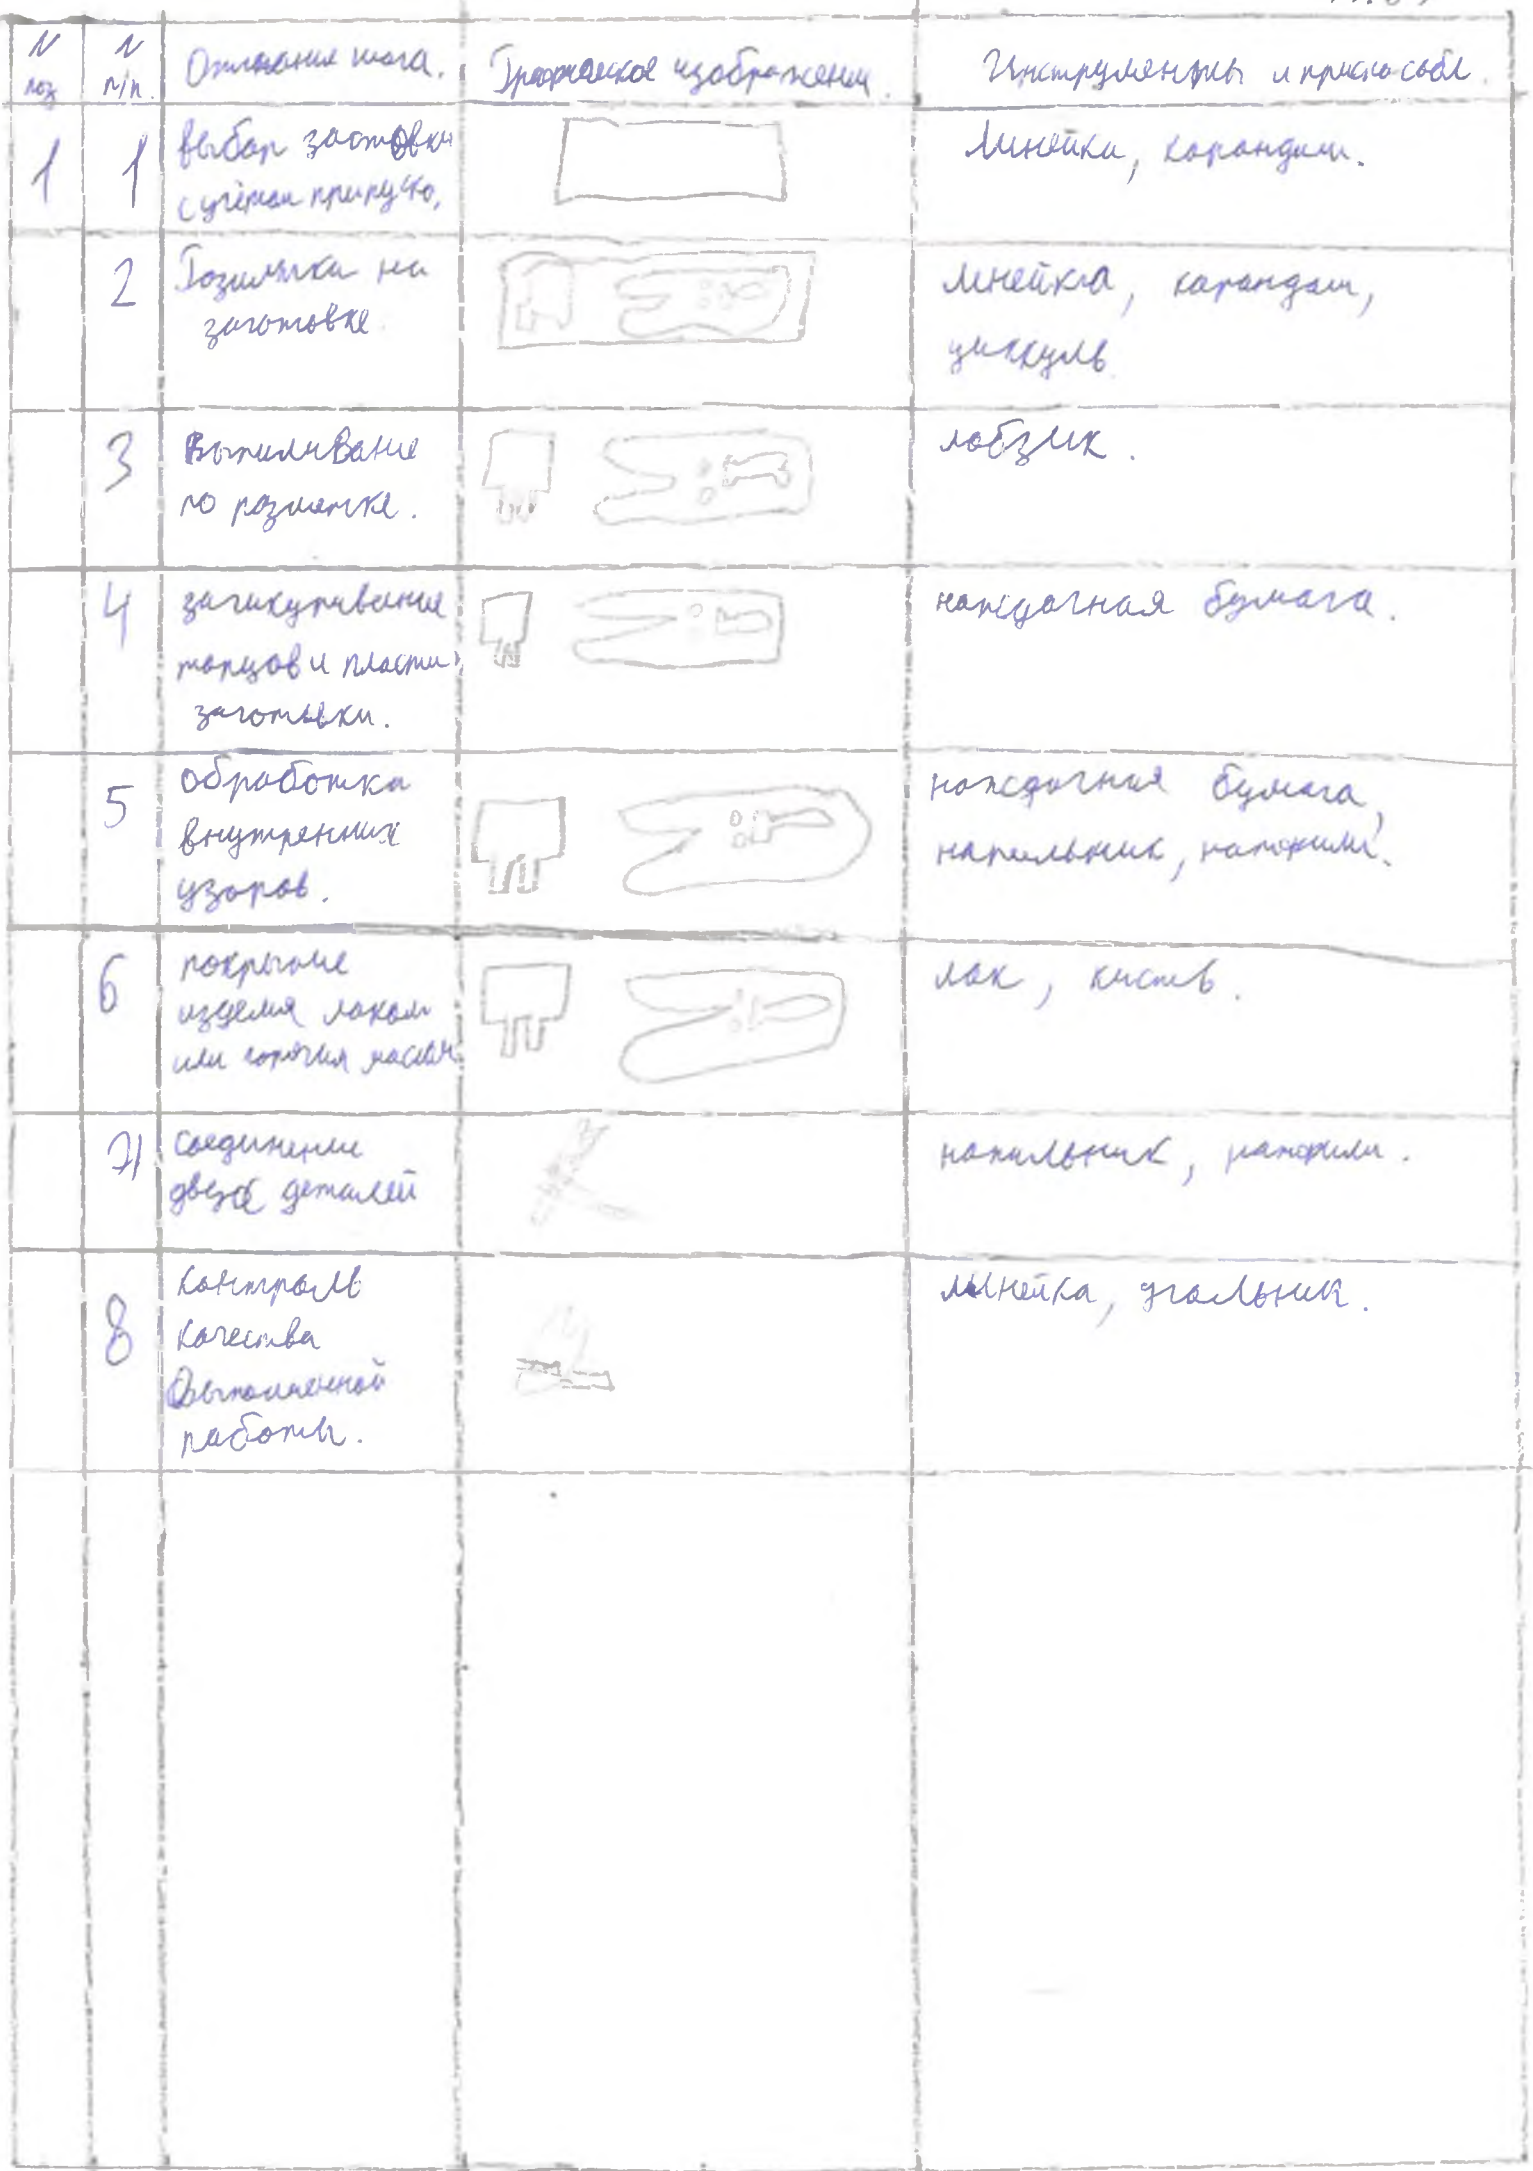 N поз
N п/п.
Описание шага.
Графическое изображении.
Инструменты и приспособл.
1
1
выбор заготовки
с учётом припуска,
Линейка, карандаш.
2
Розметка на
заготовке.
Линейка, карандаш,
циркуль.
3
Выпиливание
по разметке.
лобзик.
4
торцов и пласти
заготовки.
наждачная бумага.
5
обработка
внутренних
узоров.
наждачная бумага,
напильник, натфили.
6
покрытие
изделия лаком
или горячим маслом
лак, кисть.
7
Соединение
двух деталей
напильник, натфили.
8
Контроль
качества
Выполненной
работы.
линейка, угольник.